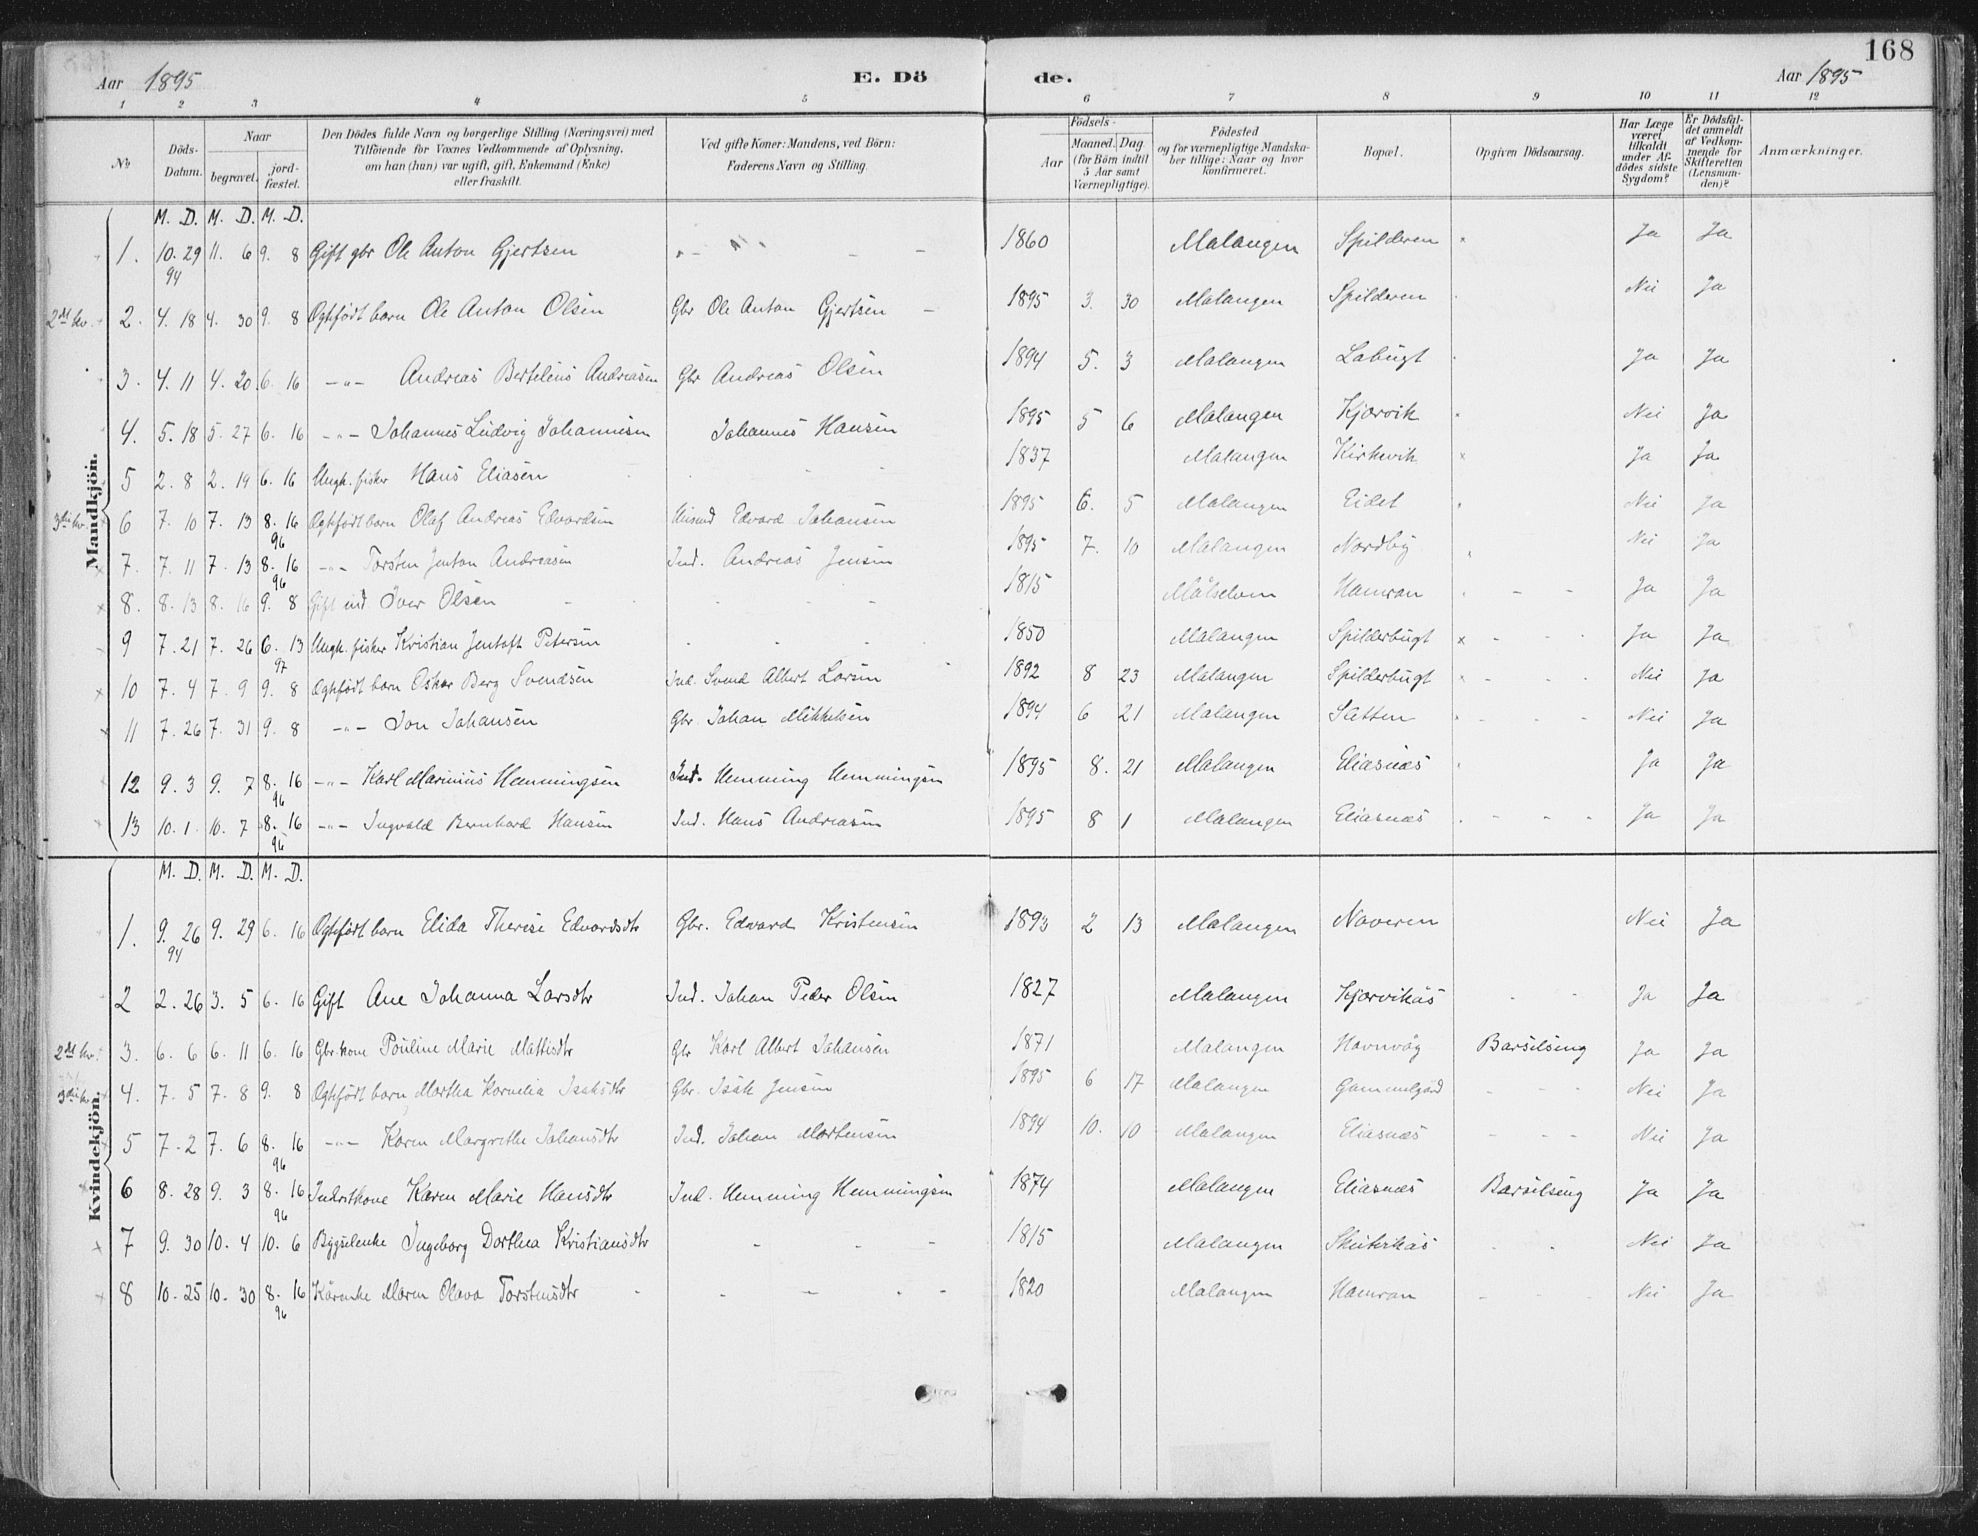 168
Aar 1895 E. Dö de. Aar 1895
1 2 3 4 5 6 7 8 9 10 11 12
No
Döds-Datum.
Naar
begravet.
jord-fæstet.
Den Dödes fulde Navn og borgerlige Stilling (Næringsvei) med
Tilföiende for Voxnes Vedkommende af Oplysning,
om han (hun) var ugift, gift, Enkemand (Enke)
eller fraskilt.
Ved gifte Koner: Mandens, ved Börn:
Faderens Navn og Stilling.
Födsels-
Aar
Maaned. Dag.
(for Börn indtil
5 Aar samt
Værnepligtige).
Födested
og for værnepligtige Mandska-
ber tillige: Naar og hvor
konfirmeret.
Bopæl.
Opgiven Dödsaarsag.
Har Læge
været
tilkaldt
under Af-
dödes sidste
Sygdom?
Er Dödsfal-
det anmeldt
af Vedkom-
mende for
Skifteretten
(Lensman-
den)?
Anmærkninger.
Mandkjön.
M. D. M. D. M. D.
1. 10. 29 94 11. 6 9. 8 Gift gbr Ole Anton Gjertsen 1860 Malangen Spilderen Ja Ja
2det kv. 2. 4. 18 4. 30 9. 8 Ægtefödt barn Ole Anton Olsen Gbr Ole Anton Gjertsen 1895 3. 30 Malangen Spilderen Nei Ja
3. 4. 11 4. 20 6. 16 -"- Andreas Bertelius Andreasen Gbr Andreas Olsen 1894 5. 3 Malangen Labugt Ja Ja
4. 5. 18 5. 27 6. 16 -"- Johannes Ludvig Johannesen Johannes Hansen 1895 5 6 Malangen Kjærvik Nei Ja
5 2. 8 2. 19 6. 16 Ungk. fisker Hans Eliasen 1837 Malangen Kirkevik Ja Ja
3die kv. 6 7. 10 7. 13 8. 16 96 Ægtefödt barn Olaf Andreas Edvardsen Edvard Johansen 1895 6. 5 Malangen Eidet Nei Ja
7. 7. 11 7. 13 8. 16 96 -"- Torsten Jentou Andreasen Ind. Andreas Jensen 1895 7. 10 Malangen Nordby Nei Ja
8. 8. 13 8. 16 9. 8 Gift ind Iver Olsen 1815 Målselven Hamran Ja Ja
9 7. 21 7. 26 6. 13 97 Ungk. fisker Kristian Jentoft Petersen 1850 Malangen Spilderbugt Ja Ja
10 7. 4 7. 9 9. 8 Ægtefödt barn Oskar Berg Svendsen Ind. Svend Albert Larsen 1892 8 23 Malangen Spilderbugt Nei Ja
11 7. 26 7. 31 9. 8 -"- Jon Johansen Gbr. Johan Mikkelsen 1894 6 21 Malangen Sletten Nei Ja
12 9. 3 9. 7 8. 16 96 -"- Karl Marinius Hemmingsen Ind. Hemming Hemmingsen 1895 8. 21 Malangen Eliasnæs Ja Ja
13 10. 1. 10. 7 8. 16 96 -"- Ingvald Bernhard Hansen Ind. Hans Andreasen 1895 8 1 Malangen Eliasnæs Ja Ja
Kvindekjön.
M. D. M. D. M. D.
1. 9. 26 94 9. 29 6. 16 Ægtefödt barn Elida Therese Edvardsdtr Gbr. Edvard Kristensen 1893 2 13 Malangen Naveren Nei Ja
2 2. 26 3. 5 6. 16 Gift Ane Johanna Larsdtr Ind. Johan Peder Olsen 1827 Malangen Kjærvikås Ja Ja
2det kv. 3. 6. 6 6. 11 6. 16 Gbr.kone Pauline Marie Mattisdtr Gbr Karl Albert Johansen 1871 Malangen Havnvåg Barselseng Ja Ja
3die kv. 4. 7. 5 7. 8 9. 8 Ægtefödt barn Martha Kornelia Isaksdtr Gbr. Isak Jensen 1895 6 17 Malangen Gammelgård Nei Ja
5 7. 2 7. 6 8. 16 96 -"- Karen Margrethe Johansdtr Ind. Johan Mortensen 1894 10. 10 Malangen Eliasnæs Nei Ja
6 8. 28 9. 3 8. 16 96 Indrstkone Karen Marie Hansdtr Ind. Hemming Hemmingsen 1874 Malangen Eliasnæs Barselseng Ja Ja
7 9. 30 10. 4 10. 6 Bygselenke Ingeborg Dorthea Kristiansdtr 1815 Malangen Nei Ja
8 10. 25 10. 30 8. 16 96 Kårenke Maren Olava Torstensdtr 1820 Malangen Hamran Nei Ja